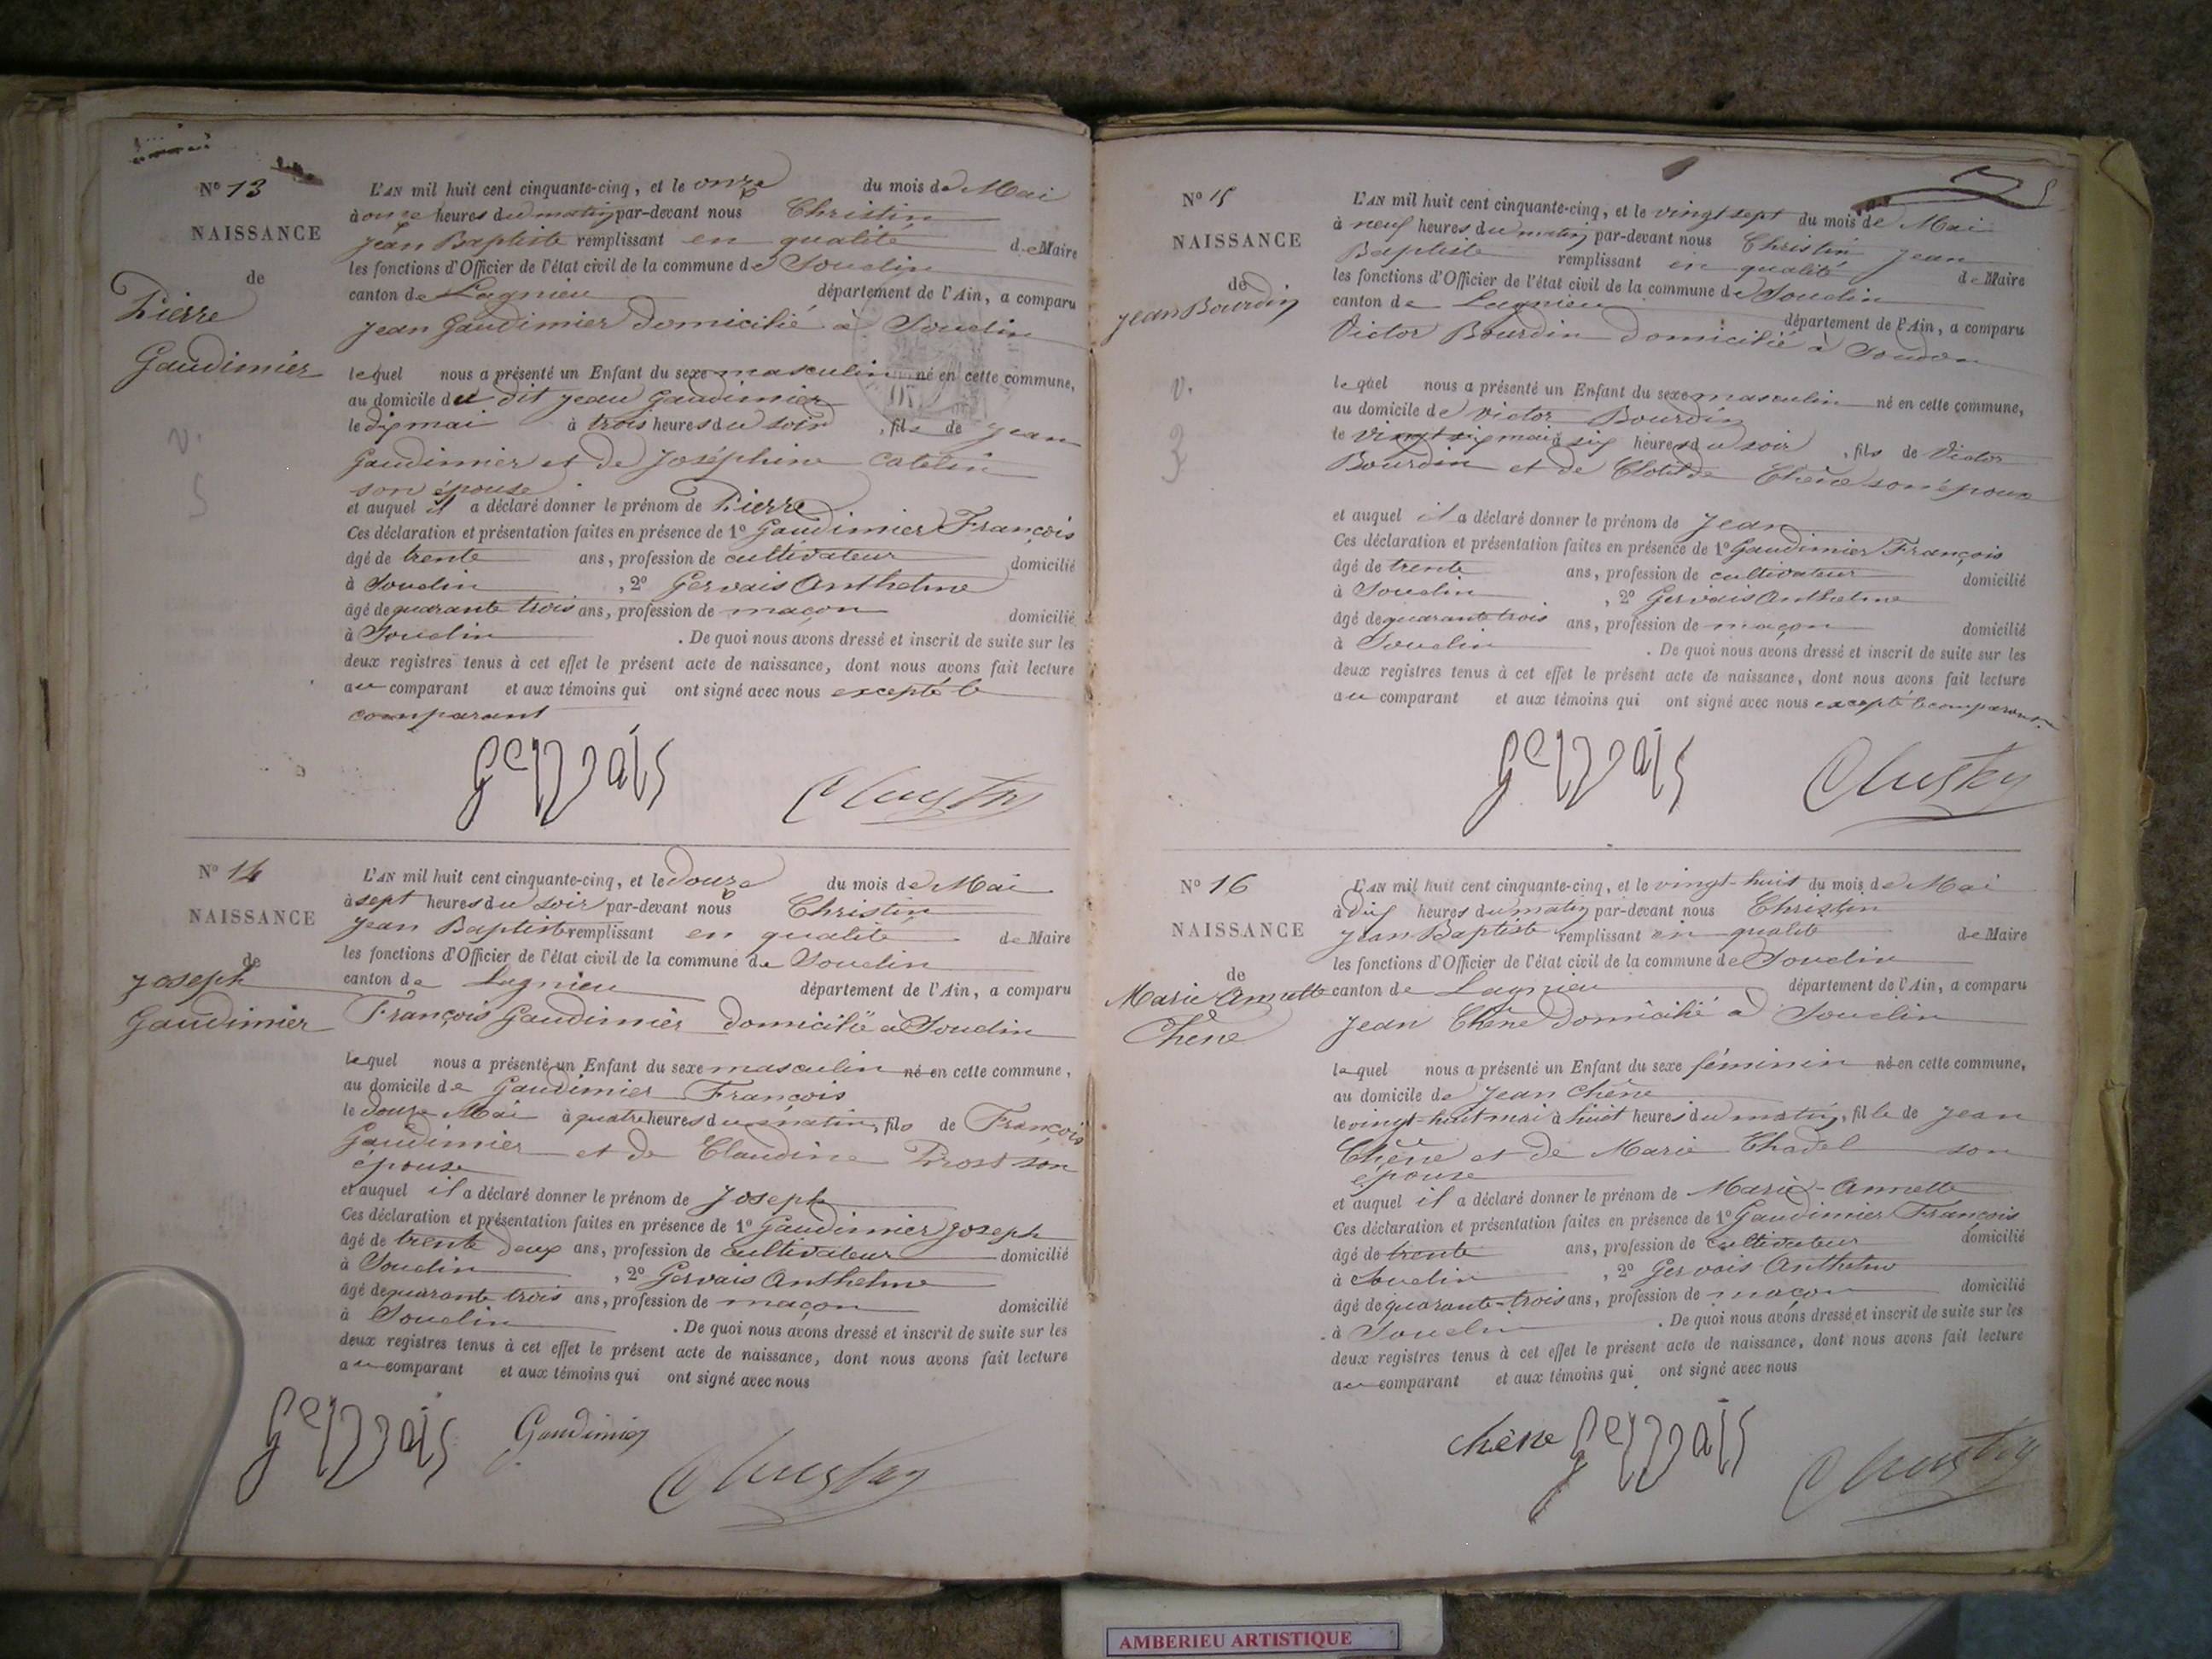 N° 13
NAISSANCE
de
Pierre
Gaudimier
V.
5
L'AN mil huit cent cinquante-cinq, et le onze du mois de Mai
à onze heures du matin par-devant nous Christin
Jean Baptiste remplissant en qualité de Maire
les fonctions d'Officier de l'état civil de la commune de Souclin
canton de Lagnieu département de l'Ain, a comparu
Jean Gaudimier domicilié à Souclin
lequel nous a présenté un Enfant du sexe masculin né en cette commune,
au domicile du dit Jean Gaudimier
le dix mai à trois heures du soir, fils de Jean
Gaudimier et de Joséphine Catelin
son épouse
et auquel il a déclaré donner le prénom de Pierre
Ces déclaration et présentation faites en présence de 1° Gaudimier François
âgé de trente ans, profession de cultivateur domicilié
à Souclin, 2° Gervais Anthelme
âgé de quarante trois ans, profession de maçon domicilié
à Souclin. De quoi nous avons dressé et inscrit de suite sur les
deux registres tenus à cet effet le présent acte de naissance, dont nous avons fait lecture
au comparant et aux témoins qui ont signé avec nous excepté le
comparant
Gervais
N° 14
NAISSANCE
de
Joseph
Gaudimier
L'AN mil huit cent cinquante-cinq, et le douze du mois de Mai
à sept heures du soir par-devant nous Christin
Jean Baptiste remplissant en qualité de Maire
les fonctions d'Officier de l'état civil de la commune de Souclin
canton de Lagnieu département de l'Ain, a comparu
François Gaudimier domicilié à Souclin
lequel nous a présenté un Enfant du sexe masculin né en cette commune,
au domicile de Gaudimier François
le douze Mai à quatre heures du matin, fils de François
Gaudimier et de Claudine Pross son
épouse
et auquel il a déclaré donner le prénom de Joseph
Ces déclaration et présentation faites en présence de 1° Gaudimier Joseph
âgé de trente deux ans, profession de cultivateur domicilié
à Souclin, 2° Gervais Anthelme
âgé de quarante trois ans, profession de maçon domicilié
à Souclin. De quoi nous avons dressé et inscrit de suite sur les
deux registres tenus à cet effet le présent acte de naissance, dont nous avons fait lecture
au comparant et aux témoins qui ont signé avec nous
Gervais Gaudimier
5
N° 15
NAISSANCE
de
Jean Bourdin
V.
3
L'AN mil huit cent cinquante-cinq, et le vingt sept du mois de Mai
à neuf heures du matin par-devant nous Christin Jean
Baptiste remplissant en qualité de Maire
les fonctions d'Officier de l'état civil de la commune de Souclin
canton de Lagnieu département de l'Ain, a comparu
Victor Bourdin domicilié à Soudon
lequel nous a présenté un Enfant du sexe masculin né en cette commune,
au domicile de Victor Bourdin
le vingt six mai à six heures du soir, fils de Victor
Bourdin et de Clotilde Chêne son épouse
et auquel il a déclaré donner le prénom de Jean
Ces déclaration et présentation faites en présence de 1° Gaudimier François
âgé de trente ans, profession de cultivateur domicilié
à Souclin, 2° Gervais Anthelme
âgé de quarante trois ans, profession de maçon domicilié
à Souclin. De quoi nous avons dressé et inscrit de suite sur les
deux registres tenus à cet effet le présent acte de naissance, dont nous avons fait lecture
au comparant et aux témoins qui ont signé avec nous excepté le comparant.
Gervais
N° 16
NAISSANCE
de
Marie Annette
Chêne
L'AN mil huit cent cinquante-cinq, et le vingt-huit du mois de Mai
à dix heures du matin par-devant nous Christin
Jean Baptiste remplissant en qualité de Maire
les fonctions d'Officier de l'état civil de la commune de Souclin
canton de Lagnieu département de l'Ain, a comparu
Jean Chêne domicilié à Souclin
lequel nous a présenté un Enfant du sexe féminin né en cette commune,
au domicile de Jean Chêne
le vingt-huit mai à huit heures du matin, fille de Jean
Chêne et de Marie Chadel son
épouse
et auquel il a déclaré donner le prénom de Marie-Annette
Ces déclaration et présentation faites en présence de 1° Gaudimier François
âgé de trente ans, profession de cultivateur domicilié
à Souclin, 2° Gervais Anthelme
âgé de quarante-trois ans, profession de maçon domicilié
à Souclin. De quoi nous avons dressé et inscrit de suite sur les
deux registres tenus à cet effet le présent acte de naissance, dont nous avons fait lecture
au comparant et aux témoins qui ont signé avec nous
chêne Gervais
AMBERIEU ARTISTIQUE